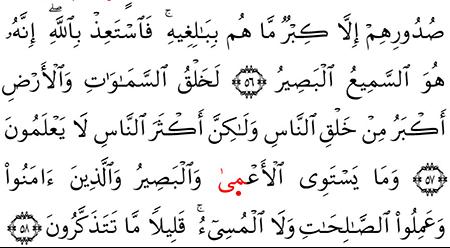 صُدُورِهِمْ إِلَّا كِبْرٌ مَّا هُم بِبَـٰلِغِيهِ ۚ فَٱسْتَعِذْ بِٱللَّهِ ۖ إِنَّهُۥ
هُوَ ٱلسَّمِيعُ ٱلْبَصِيرُ ﴿٥٦﴾ لَخَلْقُ ٱلسَّمَـٰوَٰتِ وَٱلْأَرْضِ
أَكْبَرُ مِنْ خَلْقِ ٱلنَّاسِ وَلَـٰكِنَّ أَكْثَرَ ٱلنَّاسِ لَا يَعْلَمُونَ
﴿٥٧﴾ وَمَا يَسْتَوِى ٱلْأَعْمٜىٰ وَٱلْبَصِيرُ وَٱلَّذِينَ ءَامَنُوا۟
وَعَمِلُوا۟ ٱلصَّـٰلِحَـٰتِ وَلَا ٱلْمُسِىٓءُ ۚ قَلِيلًا مَّا تَتَذَكَّرُونَ ﴿٥٨﴾